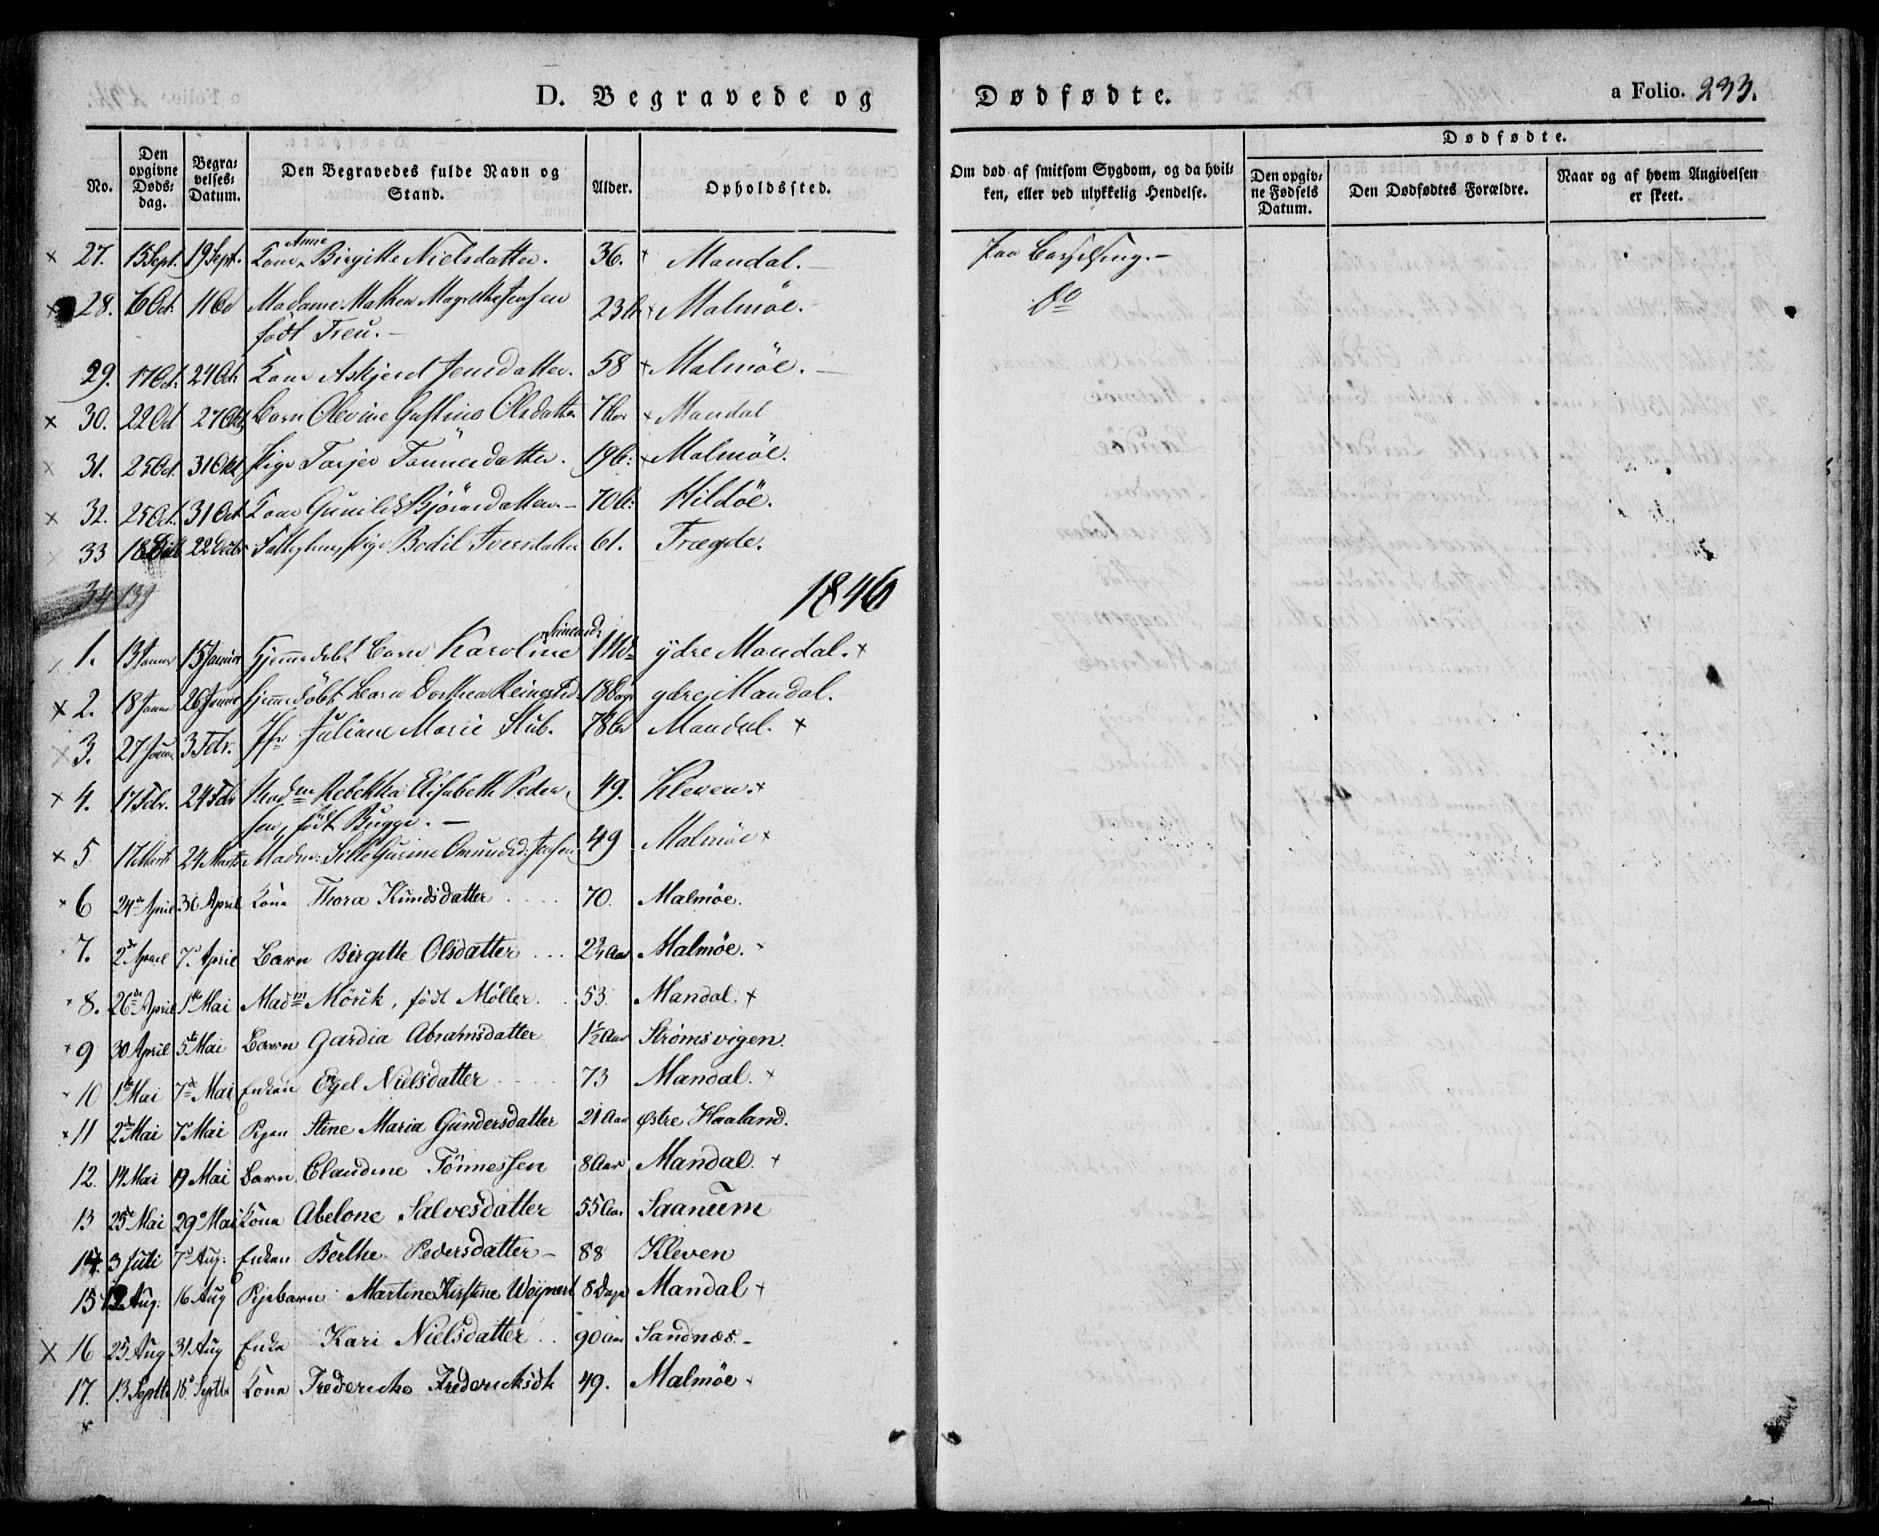 D. Begravede og Dødfødte. a Folio. 233.
No. Den opgivne Døds-dag. Begravelses-Datum. Den Begravedes fulde Navn og Stand. Alder. Opholdssted. Om død af smitsom Sygdom, og da hvilken, eller ved ulykkelig Hendelse. Dødfødte. Den opgivne Fødsels Datum. Den Dødfødtes Forældre. Naar og af hvem Angivelsen er skeet.
27. 15 Sept. 19 Sept. Kone Anne Birgitte Nielsdatter. 36. + Mandal. Paa Barselseng.
28. 6 Oct. 11 Od Madame Mathea Magrethe Jensen 23 + Malmøe. do
født Treu.
29. 17 Oct. 24 Oct Kone Askjerd Jensdatter. 58 + Malmøe.
× 30. 22 Oct 27 Oct Barn Olevine Gustine Olsdatter 7 Aar + Mandal
× 31. 25 Oct. 31 Okt Pige Torjer Tønnesdatter. 19 + Malmøe.
× 32. 25 Oct. 31 Oct Kone Gunild Bjørnsdatter. 70 Hildøe.
× 33 18 22 Pige Bodil Iversdatter 61. Trægde.
34 13
1846
1. 13 Januar 15 Januar Hjemmedøbt Barn Karoline ydre Mandal. +
× 2. 18 Janu 26 Januar Hjemmedøbt Barn Dorthea Reinert 18 Dage ydre Mandal.
× 3. 27 Janu 3 Febr. Jfr Juliane Marie Stub. 78 Mandal. +
× 4. 17 Febr. 24 Febr Madm Rebekka Elisabeth Peder- 49. Kleven. +
sen, født Bugge.
× 5 17 Marts 24 Marts Madm: Sille Gurine Omundsd: Jensen 49 Malmøe +
× 6 24de April 30 April Kone Thora Knudsdatter 70. Malmøe.
7. 2de April 7 April Barn Birgitte Olsdatter 2 3/4 Aar Malmøe.
× 8. 26de April 1ste Mai Madm Mörik, født Møller. 53. Mandal. +
× 9 30 April 5te Mai Barn Gardia Abrahmsdatter 1 1/2 Aar Strømsvigen.
10 1ste Mai 7de Mai Enken Egel Nielsdatter 73 Mandal. +
× 11 2den Mai 7 Mai Pigen Stine Maria Gundersdatter 21 Aar østre Haaland.
12. 14 Mai 19 Mai Barn Claudine Tönnessen 8 Aar Mandal. +
13 25 Mai 29 Mai Kone Abelone Salvesdatter 55 Aar. Saanum
14. 3 Juli 7 Aug. Enken Berthe Pedersdatter 88 Kleven
15 12 Aug. 16 Aug Pigebarn Martine Kirstine Weijnert 8 Dage Mandal +
× 16 25 Aug 31 Aug Enke Kari Nielsdatter 90 Aar Sandnæs
17. 13 Septbr 18 Septbr Kone Frederiche Fredericksdt 49. Malmøe